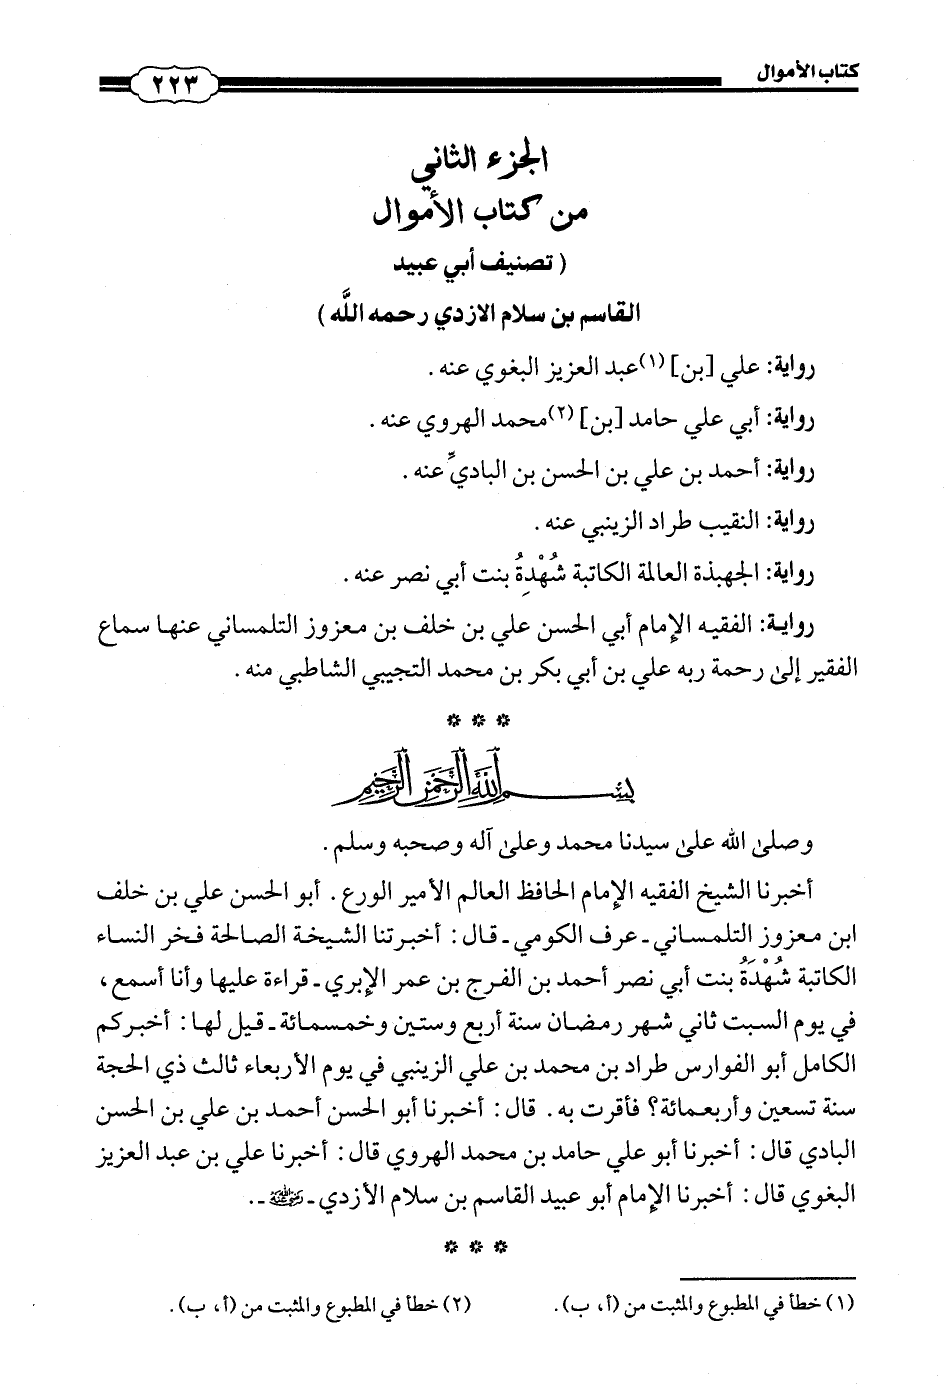 كتاب الأموال
٢٢٣
الجزء الثاني
من كتاب الأموال
( تصنيف أبي عبيد
القاسم بن سلام الازدي رحمه اللَّه )
رواية: علي [بن] (١)عبد العزيز البغوي عنه .
رواية: أبي علي حامد [بن] (٢)محمد الهروي عنه .
رواية: أحمد بن علي بن الحسن بن الباديِّ عنه .
رواية: النقيب طراد الزينبي عنه .
رواية: الجهبذة العالمة الكاتبة شُهْدِةُ بنت أبي نصر عنه .
رواية: الفقيه الإمام أبي الحسن علي بن خلف بن معزوز التلمساني عنها سماع
الفقير إلىٰ رحمة ربه علي بن أبي بكر بن محمد التجيبي الشاطبي منه .
* * *
بسم الله الرحمن الرحيم
وصلىٰ الله علىٰ سيدنا محمد وعلىٰ آله وصحبه وسلم .
أخبرنا الشيخ الفقيه الإمام الحافظ العالم الأمير الورع . أبو الحسن علي بن خلف
ابن معزوز التلمساني ـ عرف الكومي ـ قال : أخبرتنا الشيخة الصالحة فخر النساء
الكاتبة شُهْدَةُ بنت أبي نصر أحمد بن الفرج بن عمر الإبري ـ قراءة عليها وأنا أسمع ،
في يوم السبت ثاني شهر رمضان سنة أربع وستين وخمسمائة ـ قيل لها : أخبركم
الكامل أبو الفوارس طراد بن محمد بن علي الزينبي في يوم الأربعاء ثالث ذي الحجة
سنة تسعين وأربعمائة؟ فأقرت به . قال : أخبرنا أبو الحسن أحمد بن علي بن الحسن
البادي قال : أخبرنا أبو علي حامد بن محمد الهروي قال : أخبرنا علي بن عبد العزيز
البغوي قال : أخبرنا الإمام أبو عبيد القاسم بن سلام الأزدي ـ رضي الله عنه ـ .
* * *
(١) خطأ في المطبوع والمثبت من (أ، ب).
(٢) خطأ في المطبوع والمثبت من (أ، ب).